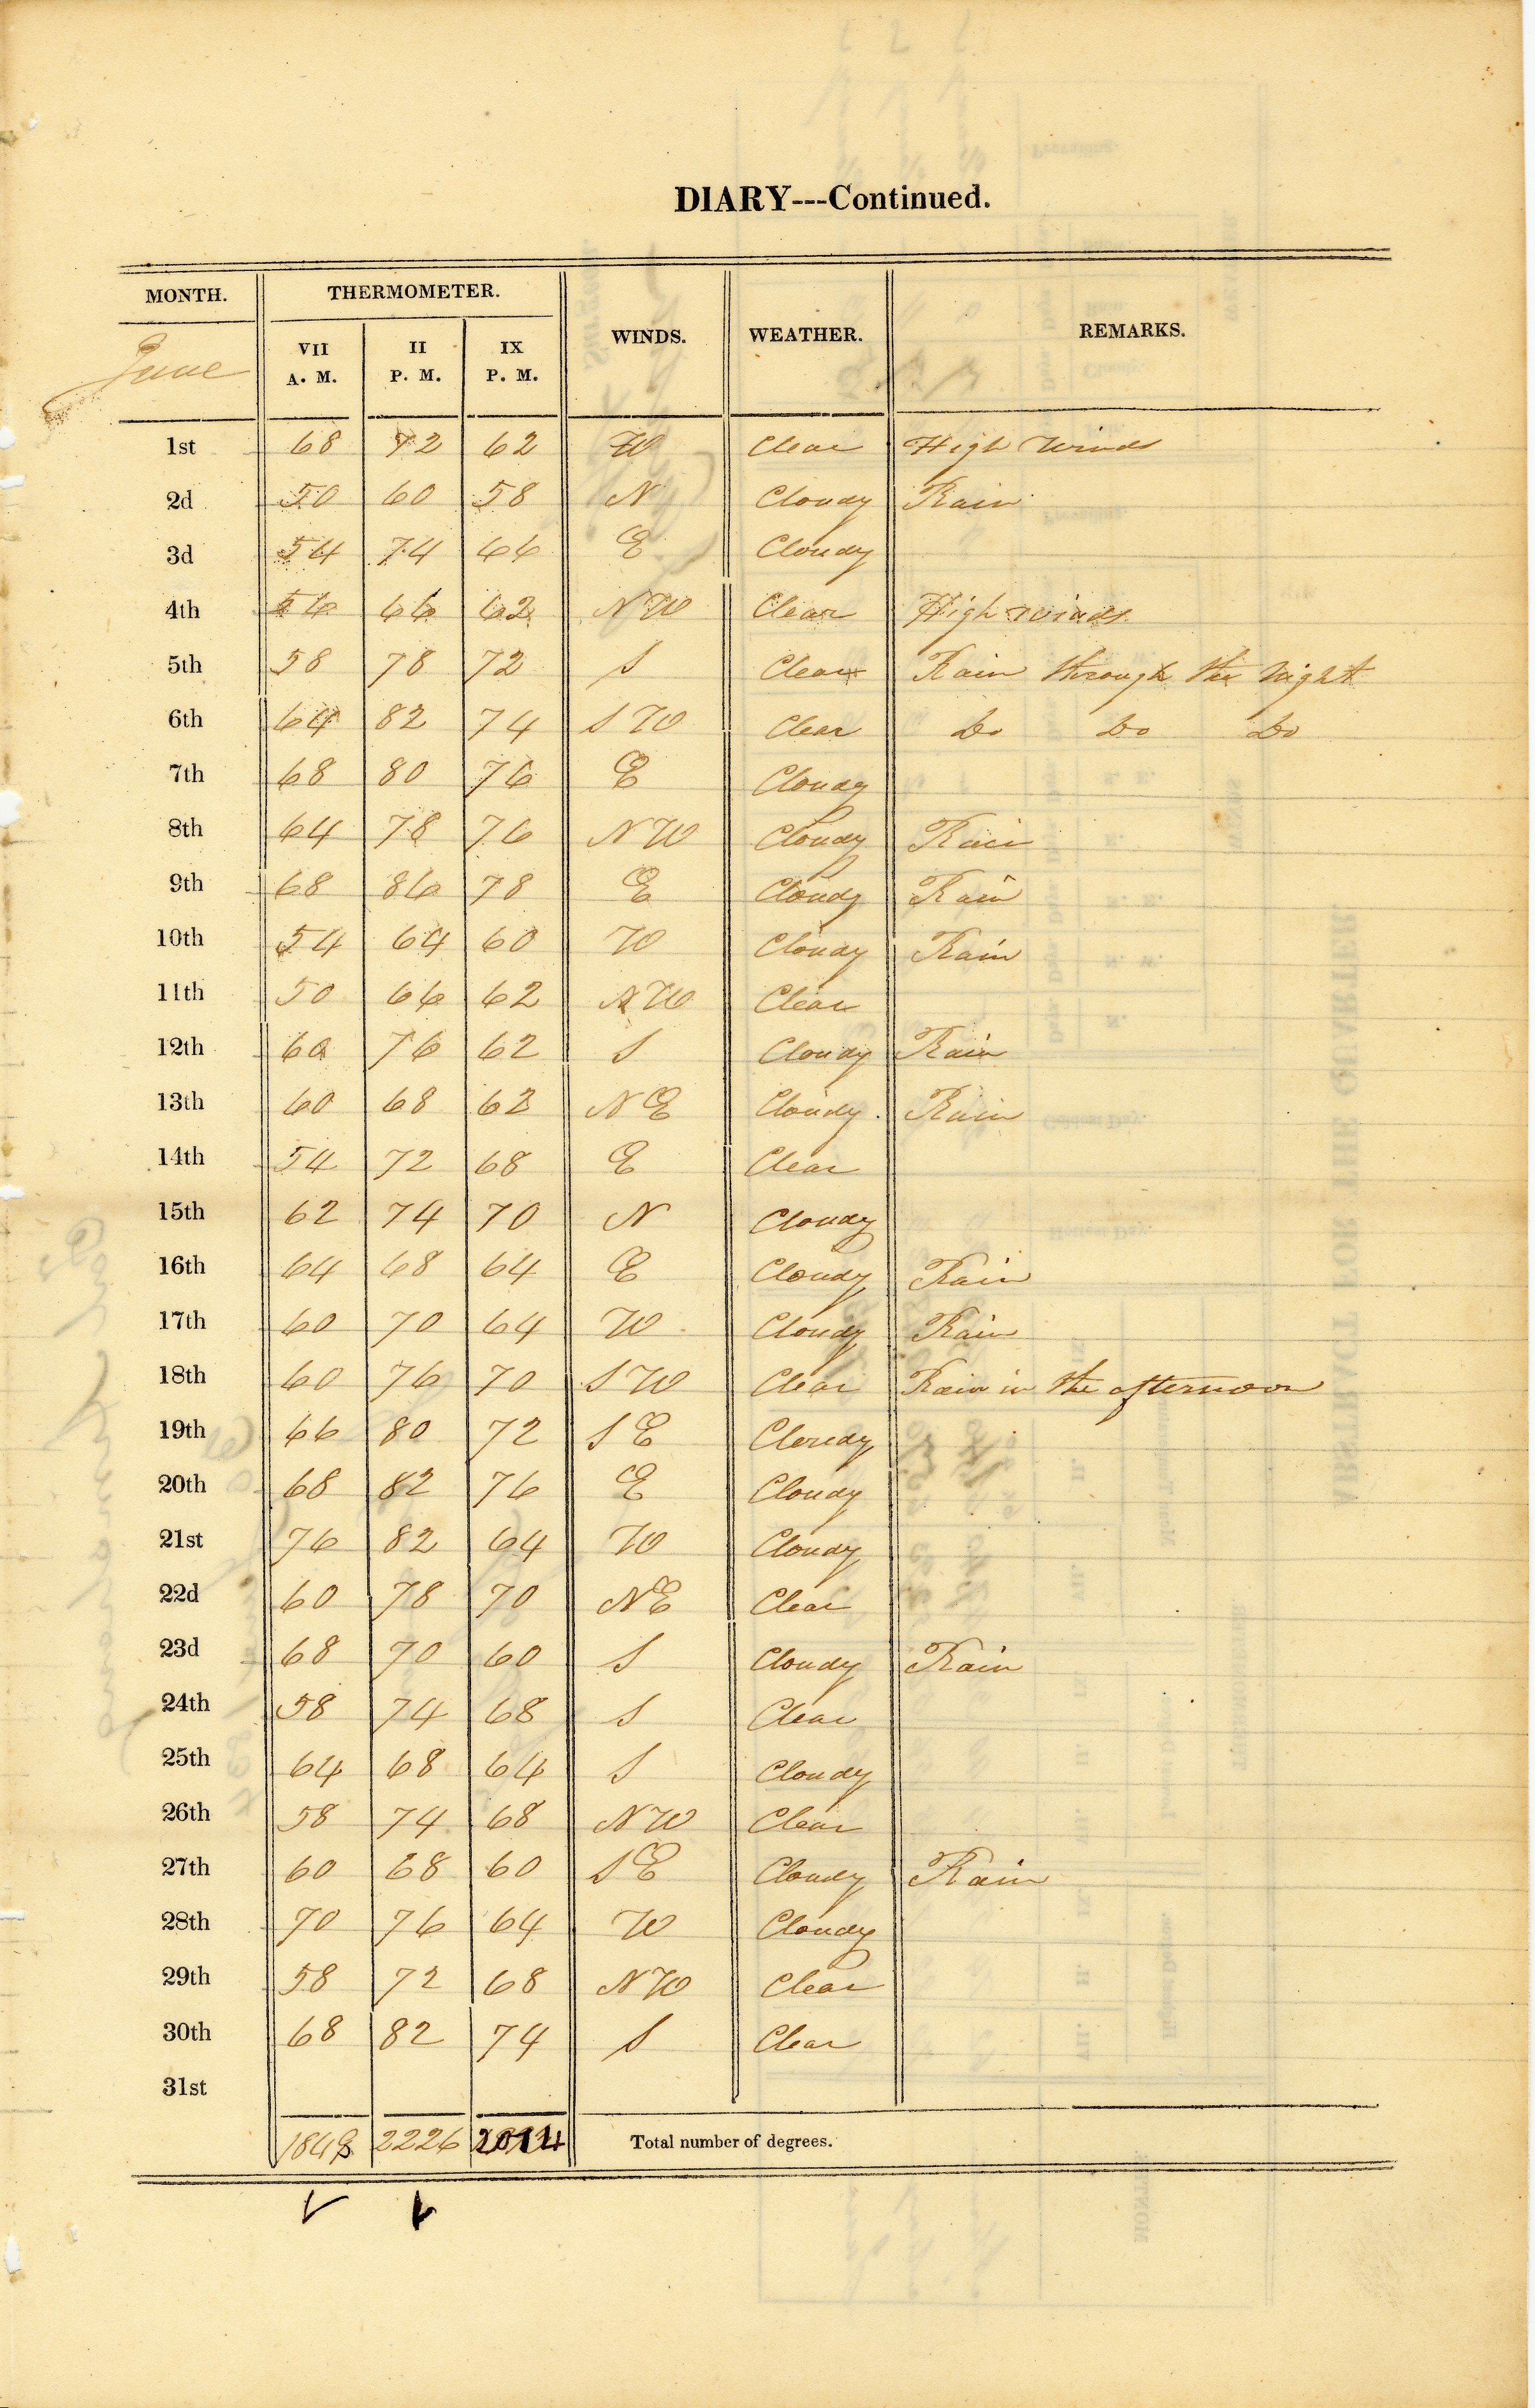 DIARY---Continued.
MONTH. THERMOMETER. WINDS. WEATHER. REMARKS.
June VII A. M. II P. M. IX P. M.
1st 68 72 62 W Clear High Winds
2d 50 60 58 N Cloudy Rain
3d 54 74 66 E Cloudy
4th 56 66 62 NW Clear High winds
5th 58 78 72 S Clear Rain through the Night
6th 64 82 74 SW Clear Do Do Do
7th 68 80 76 E Cloudy
8th 64 78 76 NW Cloudy Rain
9th 68 86 78 E Cloudy Rain
10th 54 64 60 W Cloudy Rain
11th 50 66 62 NW Clear
12th 60 76 62 S Cloudy Rain
13th 60 68 62 NE Cloudy Rain
14th 54 72 68 E Clear
15th 62 74 70 N Cloudy
16th 64 68 64 E Cloudy Rain
17th 60 70 64 W Cloudy Rain
18th 60 76 70 SW Clear Rain in the afternoon
19th 66 80 72 SE Cloudy
20th 68 82 76 E Cloudy
21st 76 82 64 W Cloudy
22d 60 78 70 NE Clear
23d 68 70 60 S Cloudy Rain
24th 58 74 68 S Clear
25th 64 68 64 S Cloudy
26th 58 74 68 NW Clear
27th 60 68 60 SE Cloudy Rain
28th 70 76 64 W Cloudy
29th 58 72 68 NW Clear
30th 68 82 74 S Clear
31st
2226 2014 Total number of degrees.